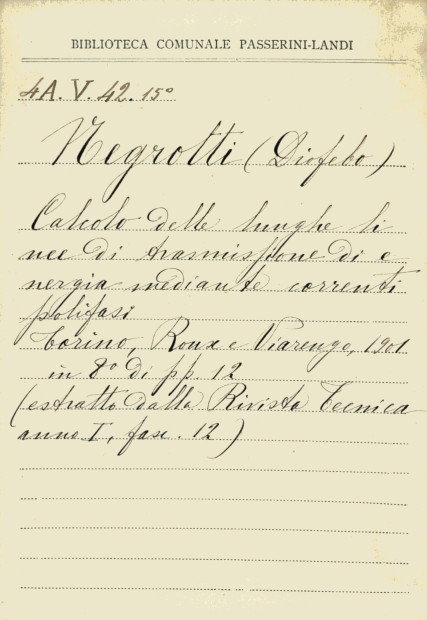 BIBLIOTECA COMUNALE PASSERINI-LANDI
4A. V. 42. 15°
Negrotti (Diofebo)
Calcolo delle lunghe li
nee di trasmissione di e
nergia mediante correnti
polifasi
Torino, Roux e Viarengo, 1901
in 8° di pp. 12
(estratto dalla Rivista Tecnica
anno I, fasc. 12)